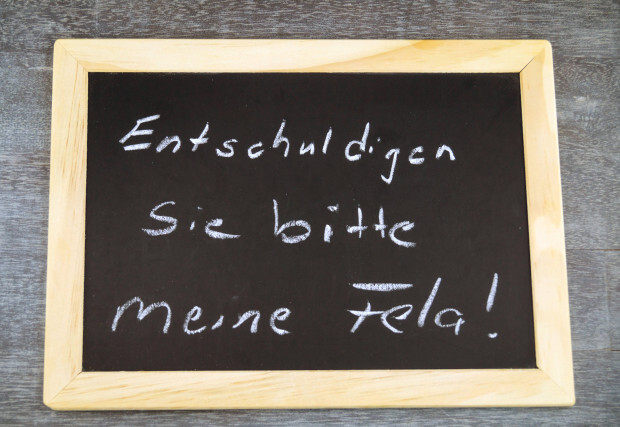 Entschuldigen
Sie bitte
meine Fela!